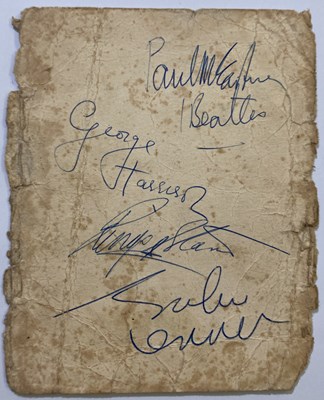 Paul McCartney
Beatles
George
Harrison
Ringo Starr
John
Lennon